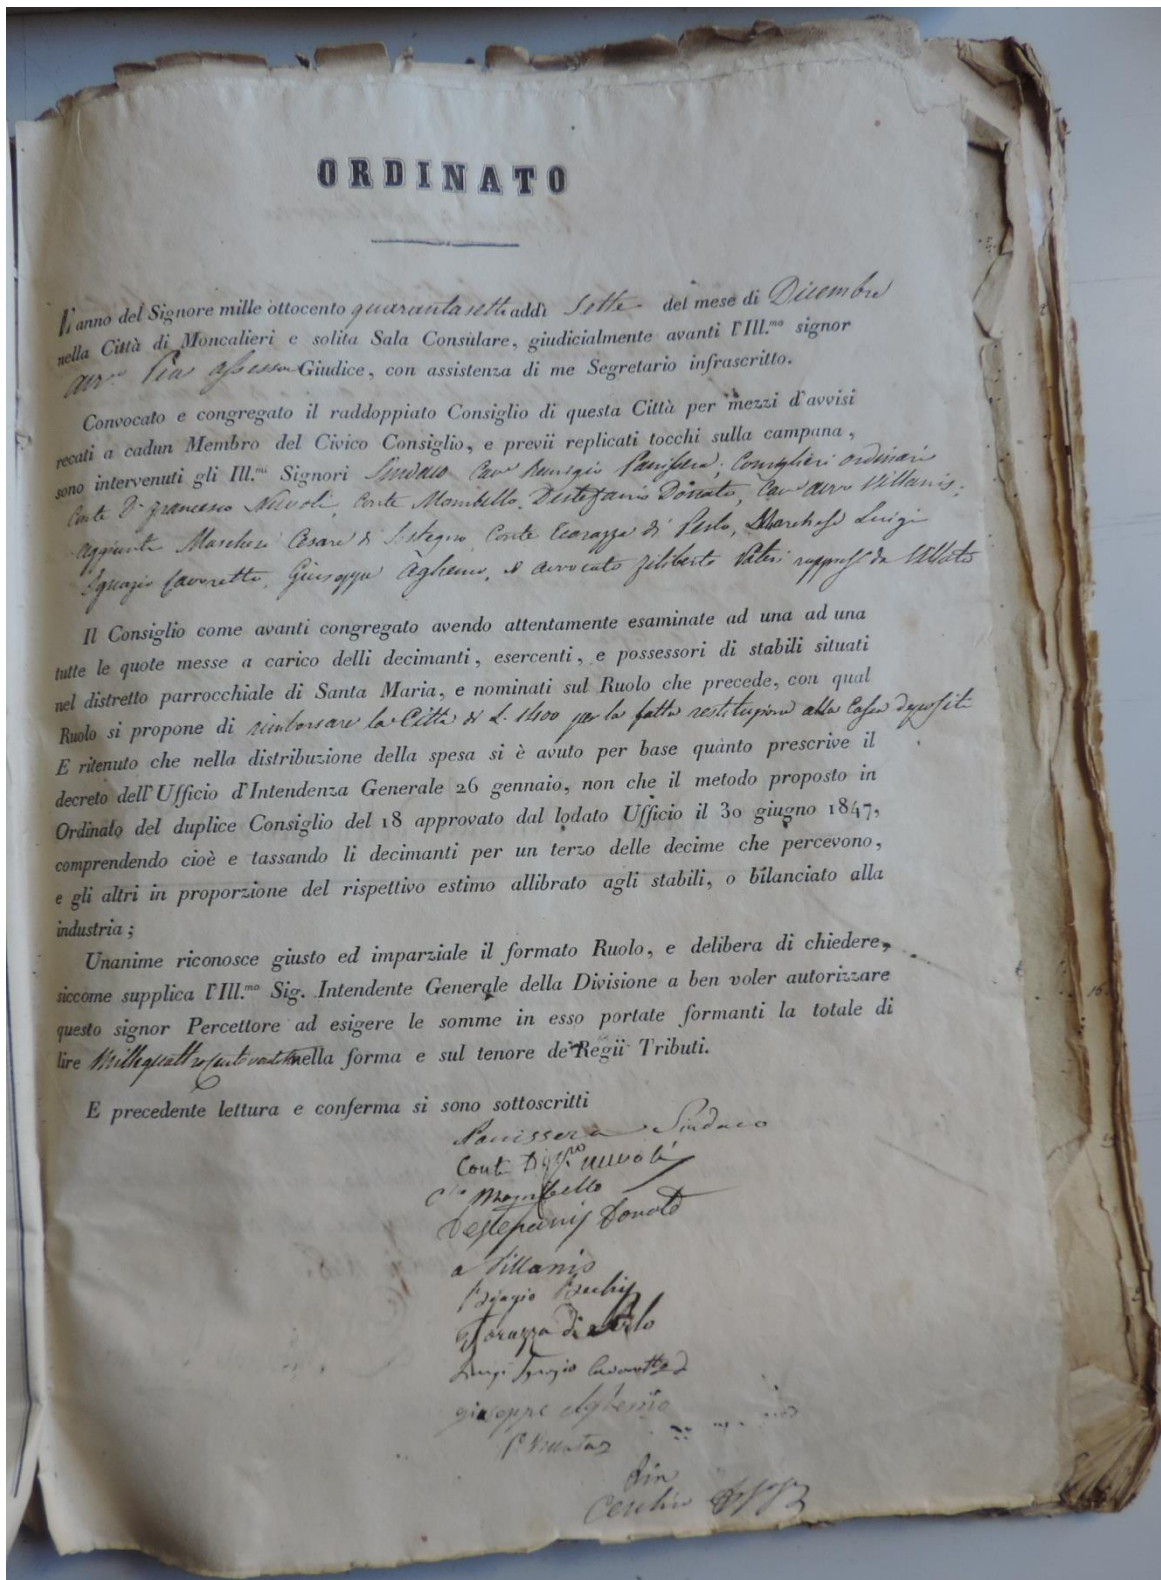 ORDINATO
L'anno del Signore mille ottocento quarantasette addì Sette del mese di Dicembre
nella Città di Moncalieri e solita Sala Consulare, giudicialmente avanti l'Ill.mo signor
Avv.o Pia assessore Giudice, con assistenza di me Segretario infrascritto.
Convocato e congregato il raddoppiato Consiglio di questa Città per mezzi d'avvisi
recati a cadun Membro del Civico Consiglio, e previi replicati tocchi sulla campana,
sono intervenuti gli Ill.mi Signori Sindaco Cav.e Remigio Panissera; Consiglieri ordinari
Conte D. Francesco Nuvoli, Conte Mombello, Destefanis Donato, Cav.e Avv.o Villanis;
Aggiunti Cesare di Conte di Perlo, Luigi
Ignazio Cavoretto, Giuseppe Aghemo, e avvocato Filiberto da
Il Consiglio come avanti congregato avendo attentamente esaminate ad una ad una
tutte le quote messe a carico delli decimanti, esercenti, e possessori di stabili situati
nel distretto parrocchiale di Santa Maria, e nominati sul Ruolo che precede, con qual
Ruolo si propone di rimborsare la Città di L. 1400 per la fatta restituzione alla Cassa depositi
E ritenuto che nella distribuzione della spesa si è avuto per base quanto prescrive il
decreto dell'Ufficio d'Intendenza Generale 26 gennaio, non che il metodo proposto in
Ordinato del duplice Consiglio del 18 approvato dal lodato Ufficio il 30 giugno 1847,
comprendendo cioè e tassando li decimanti per un terzo delle decime che percevono,
e gli altri in proporzione del rispettivo estimo allibrato agli stabili, o bilanciato alla
industria;
Unanime riconosce giusto ed imparziale il formato Ruolo, e delibera di chiedere,
siccome supplica l'Ill.mo Sig. Intendente Generale della Divisione a ben voler autorizzare
questo signor Percettore ad esigere le somme in esso portate formanti la totale di
lire nella forma e sul tenore de' Regii Tributi.
E precedente lettura e conferma si sono sottoscritti
Panissera Sindaco
Conte Nuvoli
Mombello
Destefanis Donato
a Villanis
Biagio
di Perlo
Luigi Ignazio Cavoretto
giuseppe Aghemo